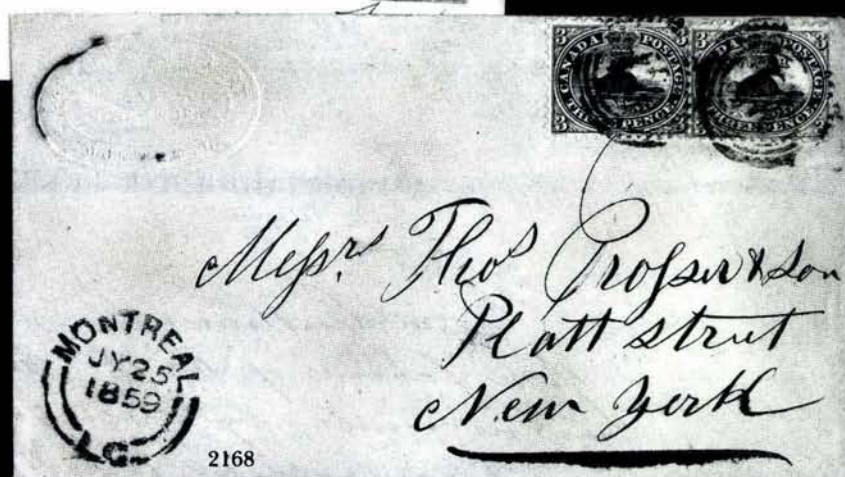 3 CANADA POSTAGE 3
3 THREE PENCE 3
3 DA POSTAGE
PENCE
Messrs Thos Prosser & Son
Platt Street
New York
MONTREAL
JY 25
1859
L.C.
2168